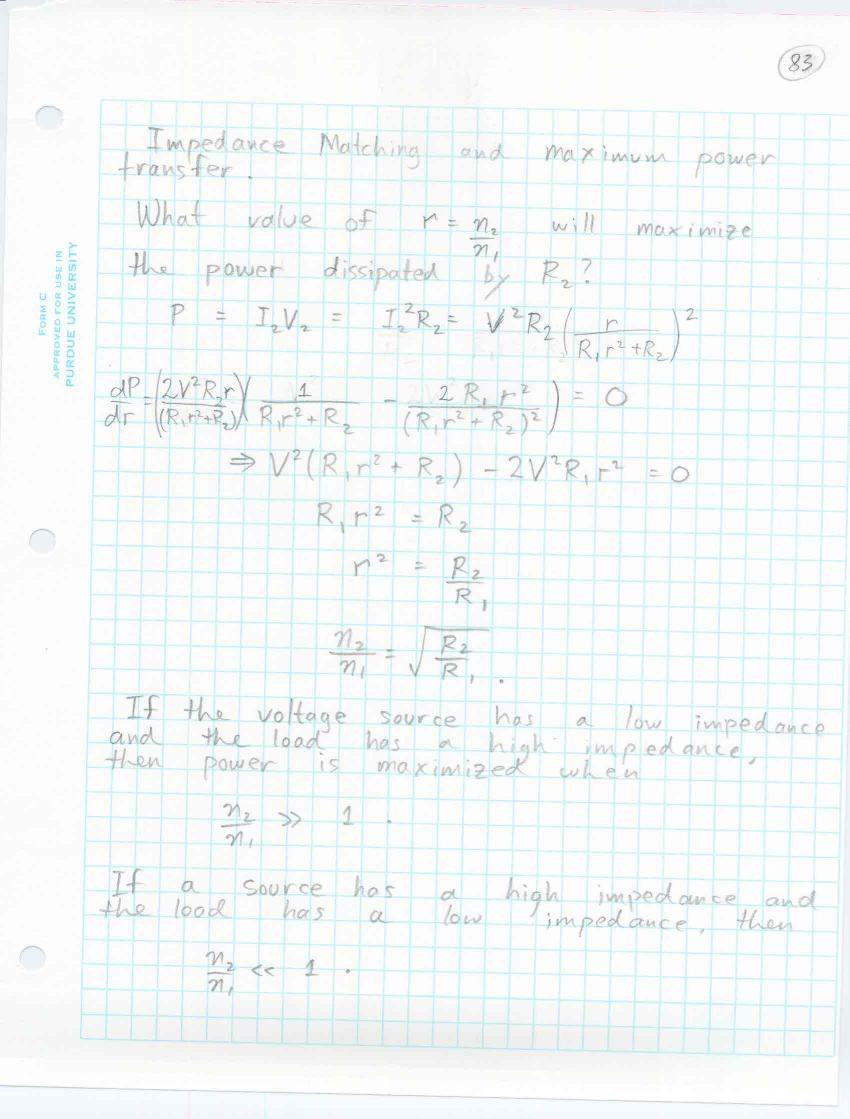 83
Impedance Matching and maximum power
transfer.
What value of r = n₂/n₁ will maximize
the power dissipated by R₂?
P = I₂V₂ = I₂²R₂ = V²R₂(r/(R₁r²+R₂))²
dP/dr = (2V²R₂r/(R₁r²+R₂))(1/(R₁r²+R₂) - 2R₁r²/(R₁r²+R₂)²) = 0
⇒ V²(R₁r² + R₂) - 2V²R₁r² = 0
R₁r² = R₂
r² = R₂/R₁
n₂/n₁ = √(R₂/R₁).
If the voltage source has a low impedance
and the load has a high impedance,
then power is maximized when
n₂/n₁ >> 1.
If a source has a high impedance and
the load has a low impedance, then
n₂/n₁ << 1.
FORM C
APPROVED FOR USE IN
PURDUE UNIVERSITY